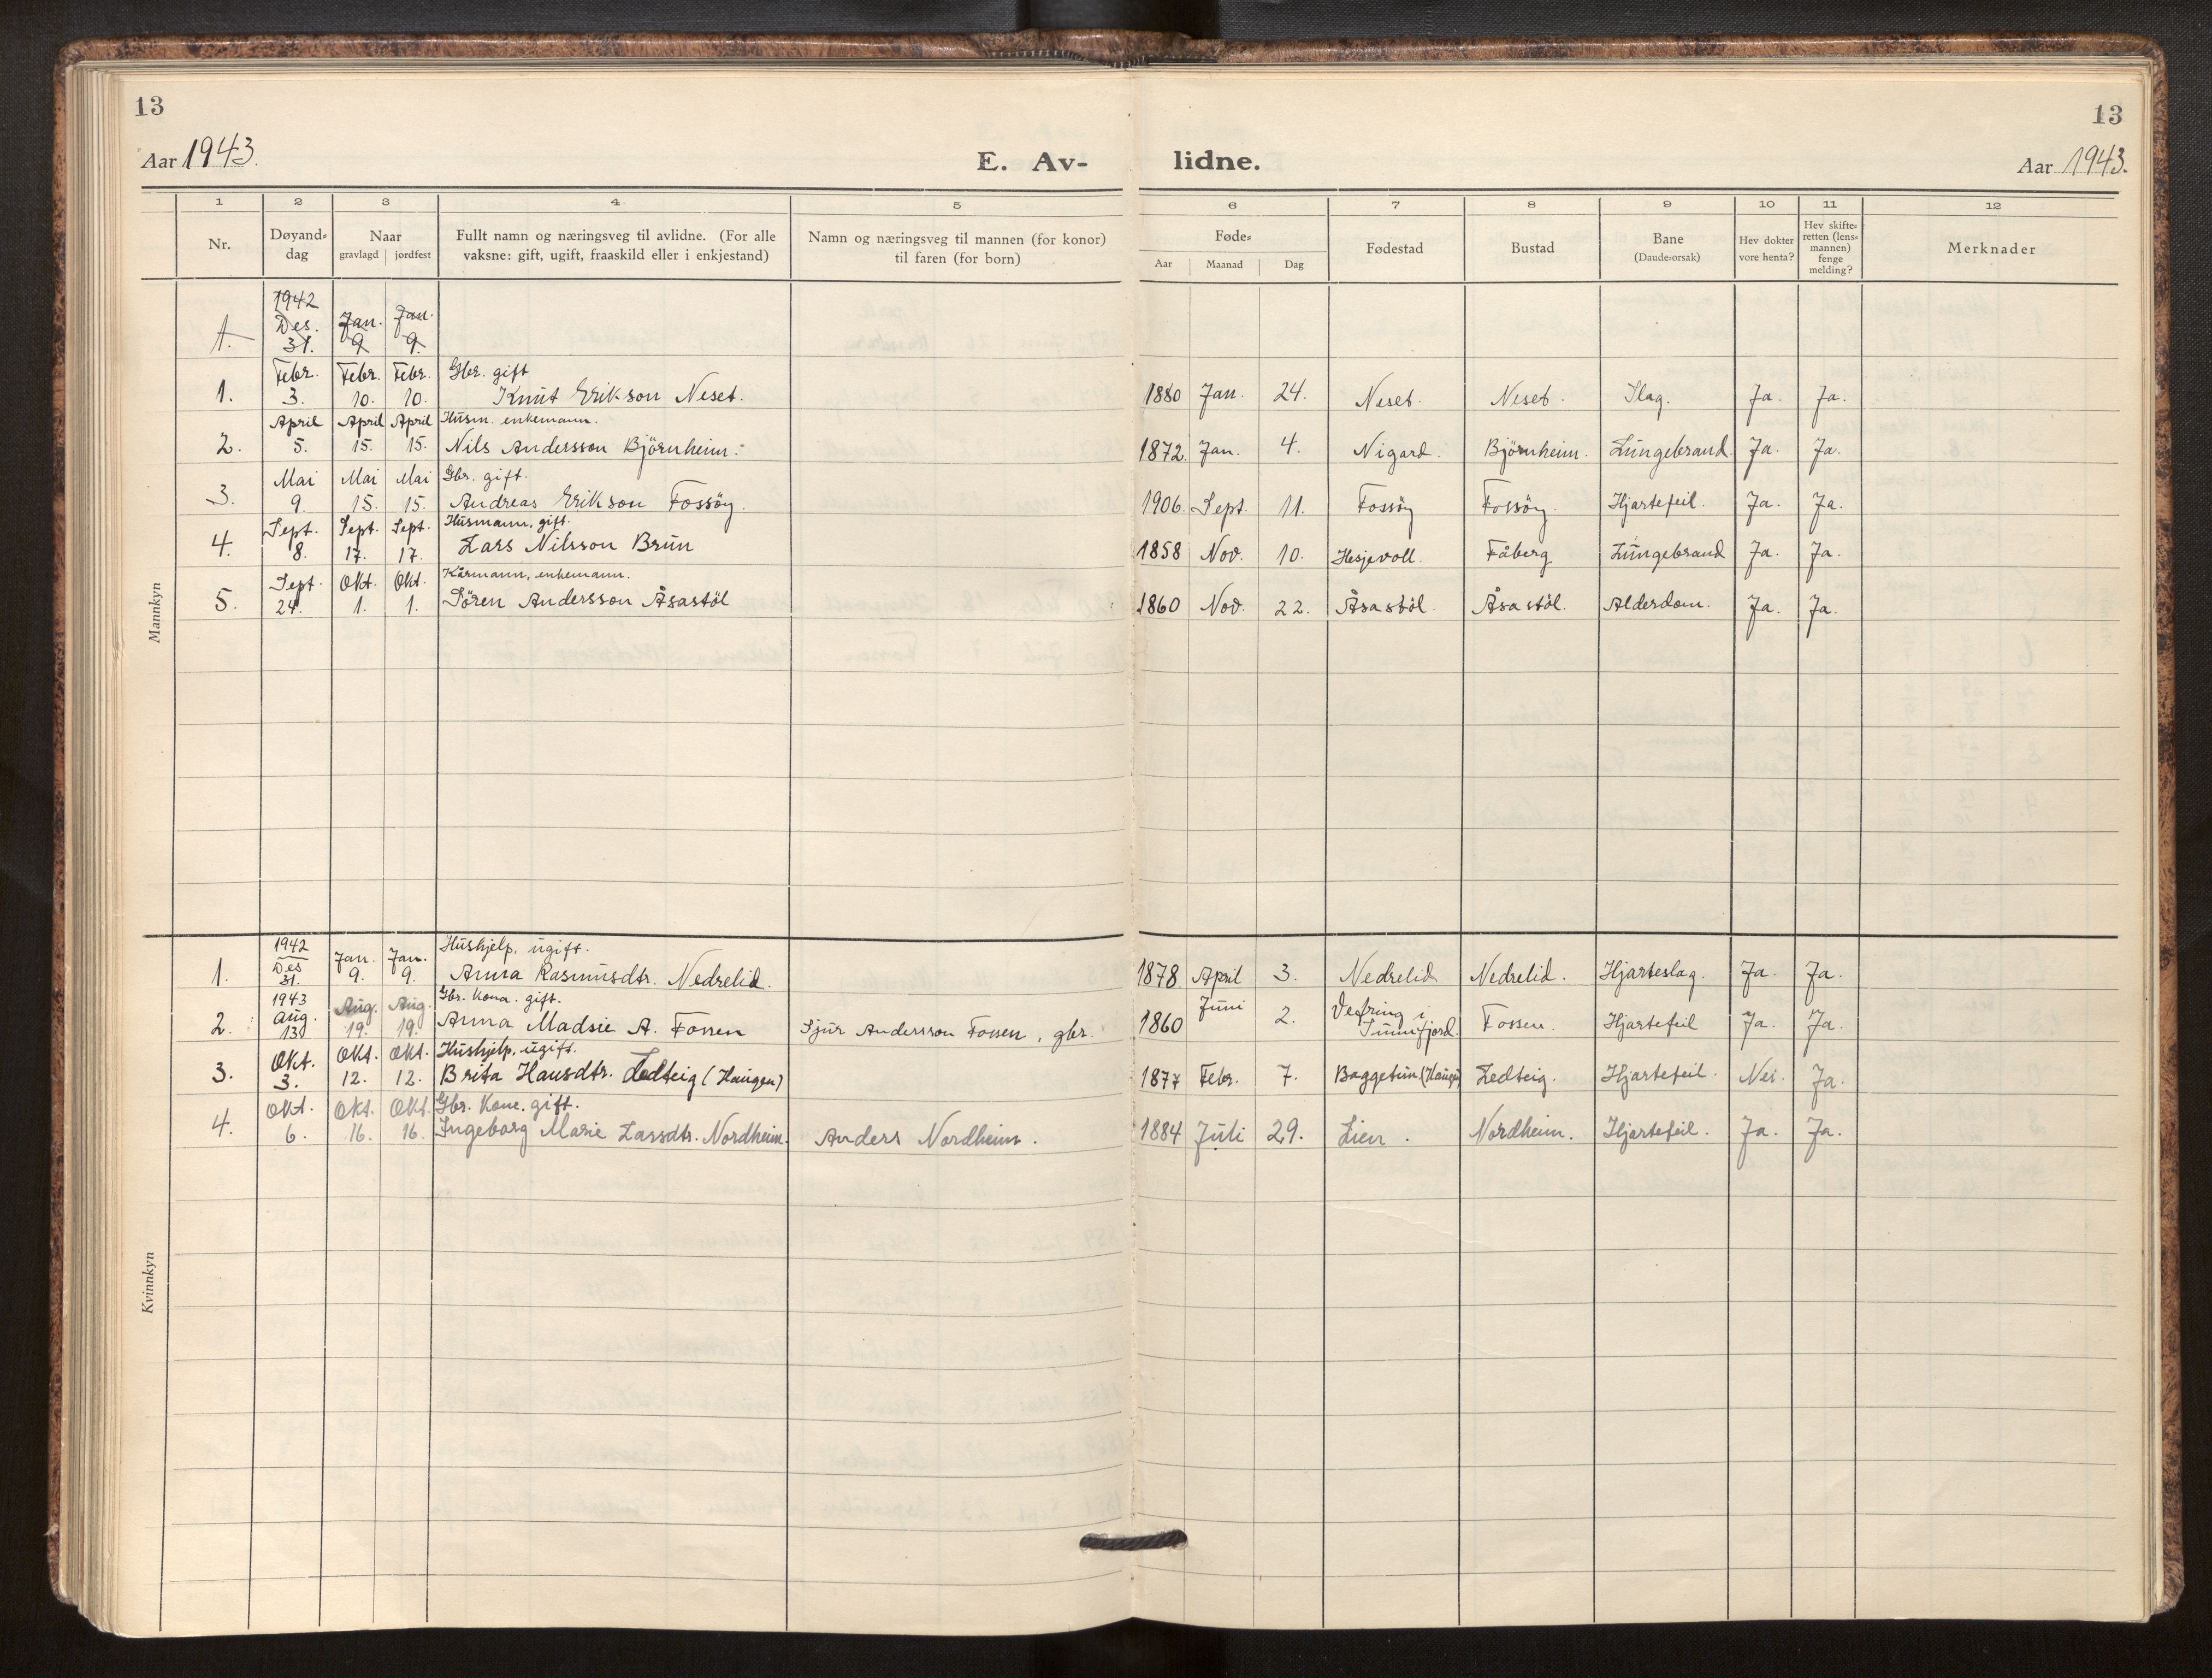 13
13
Aar 1943.
E. Av-
lidne.
Aar 1943.
1 2 3 4 5 6 7 8 9 10 11 12
Nr.
Døyand-
dag
Naar
gravlagd jordfest
Fullt namn og næringsveg til avlidne. (For alle
vaksne: gift, ugift, fraaskild eller i enkjestand)
Namn og næringsveg til mannen (for konor)
til faren (for born)
Føde-
Aar Maanad Dag
Fødestad
Bustad
Bane
(Daude-orsak)
Hev dokter
vore henta?
Hev skifte-
retten (lens-
mannen)
fenge
melding?
Merknader
Mannkyn
1942
Des. Jan. Jan.
1. 31. 9 9.
Febr. Febr. Febr. Gbr. gift
1. 3. 10. 10. Knut Erikson Neset. 1880 Jan. 24. Neset. Neset. Slag. Ja. Ja.
April April April Husm. enkemann.
2. 5. 15. 15. Nils Andersson Björnheim. 1872. Jan. 4. Nigard. Björnheim. Lungebrand. Ja. Ja.
Mai Mai Mai Gbr. gift.
3. 9. 15. 15. Andreas Erikson Fossöy. 1906. Sept. 11. Fossöy Fossöy. Hjartefeil. Ja. Ja.
Sept. Sept. Sept. Husmann, gift.
4. 8. 17. 17. Lars Nilsson Brun 1858 Nov. 10. Hesjevoll. Fåberg Lungebrand Ja. Ja.
Sept. Okt. Okt. Kårmann, enkemann.
5. 24. 1. 1. Sören Andersson Åsastöl 1860 Nov. 22. Åsastöl. Åsastöl. Alderdom. Ja. Ja.
Kvinnkyn
1942
Des Jan. Jan. Hushjelp, ugift.
1. 31. 9. 9. Anna Rasmusdtr. Nedrelid. 1878 April 3. Nedrelid Nedrelid. Hjarteslag. Ja. Ja.
1943
Aug. Aug. Aug. Gbr. Kona. gift.
2. 13 19. 19. Anna Madsie A. Fossen Sjur Andersson Fossen, gbr. 1860 Juni 2. Vevring i
Sunnfjord. Fossen. Hjartefeil Ja. Ja.
Okt. Okt. Okt. Hushjelp, ugift.
3. 3. 12. 12. Brita Hansdtr. Ledteig (Haugen) 1877 Febr. 7. Baggetun (Haugen) Ledteig. Hjartefeil. Nei. Ja.
Okt. Okt. Okt. Gbr. Kone. gift.
4. 6. 16. 16. Ingeborg Marie Larsdtr. Nordheim. Anders Nordheim. 1884 Juli 29. Lien. Nordheim. Hjartefeil. Ja. Ja.